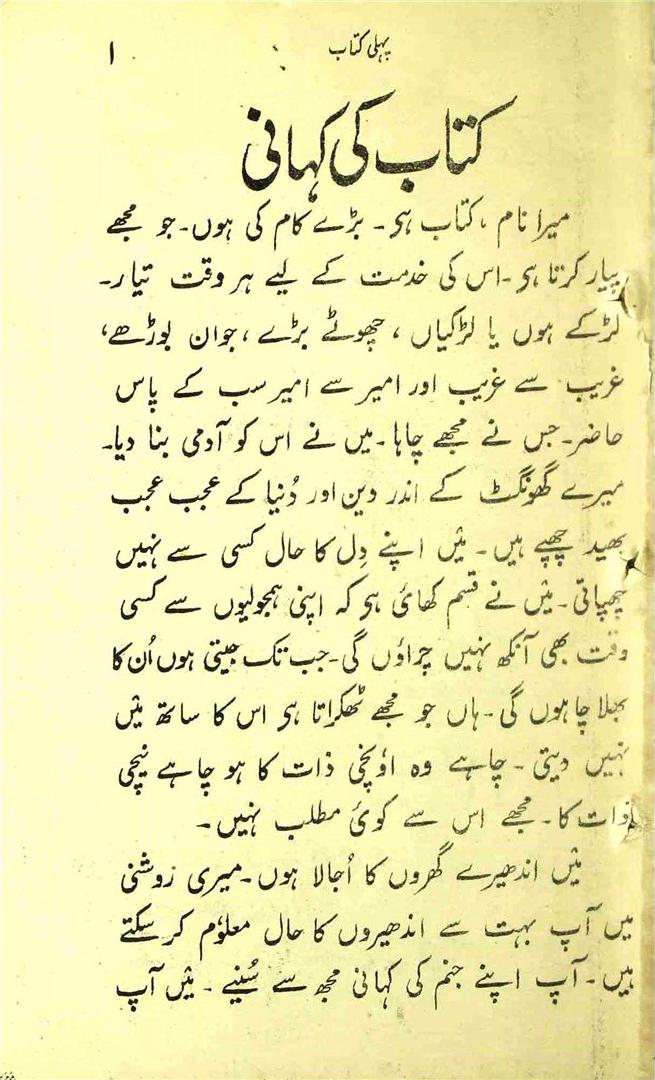 پہلی کتاب ۱
کتاب کی کہانی
میرا نام، کتاب ہی۔ بڑے کام کی ہوں۔ جو مجھے
پیار کرتا ہی۔ اس کی خدمت کے لیے ہر وقت تیار۔
لڑکے ہوں یا لڑکیاں، چھوٹے بڑے، جوان بوڑھے،
غریب سے غریب اور امیر سے امیر سب کے پاس
حاضر۔ جس نے مجھے چاہا۔ میں نے اس کو آدمی بنا دیا۔
میرے گھونگٹ کے اندر دین اور دُنیا کے عجب عجب
بھید چھپے ہیں۔ میَں اپنے دِل کا حال کسی سے نہیں
چھپاتی۔ میَں نے قسم کھائ ہی کہ اپنی ہمجولیوں سے کسی
وقت بھی آنکھ نہیں چراؤں گی۔ جب تک جیتی ہوں اُن کا
بھلا چاہوں گی۔ ہاں جو مجھے ٹھکراتا ہی اس کا ساتھ میَں
نہیں دیتی۔ چاہے وہ اوٗنچی ذات کا ہو چاہے نیچی
ذات کا۔ مجھے اس سے کوئ مطلب نہیں۔
میَں اندھیرے گھروں کا اُجالا ہوں۔ میری روشنی
میں آپ بہت سے اندھیروں کا حال معلوٗم کر سکتے
ہیں۔ آپ اپنے جنم کی کہانی مجھ سے سُنیے۔ میَں آپ